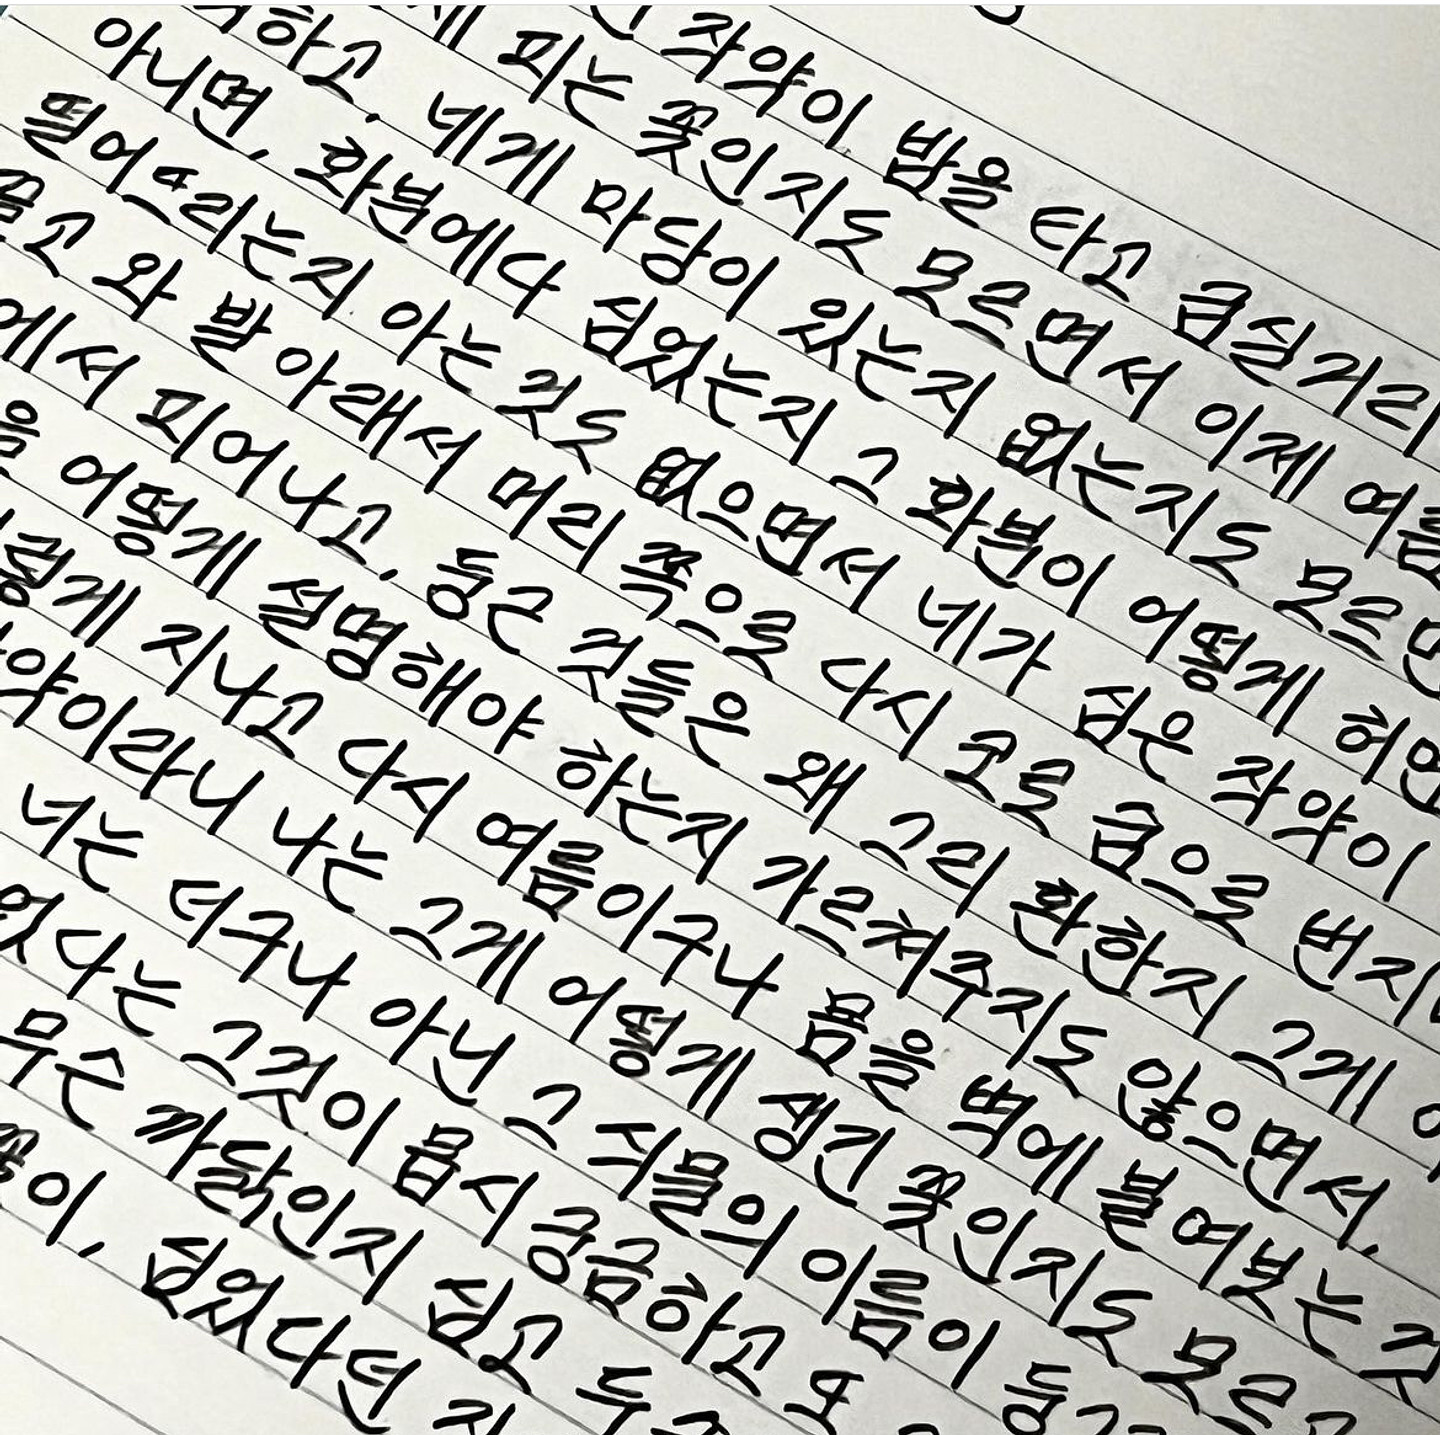 작약이, 밤을 타고 굼실거리
피는 꽃인지도 모르면서 이제 여름
하고. 네게 마당이 있는지 없는지도 모르면
아니면, 화분에다 심었는지 그 화분이 어떻게 허연
떨어뜨리는지 아는 것도 없으면서 네가 심은 작약이
끌고 와 발 아래서 머리 쪽으로 다시 코로 숨으로 번지
에서 피어나고, 둥근 것들은 왜 그리 환한지 그게
을 어떻게 설명해야 하는지 가르쳐주지도 않으면서,
렇게 지나고 다시 여름이구나 몸을 벽에 것
약이라니 나는 그게 어떻게 생긴 꽃인지도 모르고
너는 더구나 아닌 그 식물의 이름이 둥
있다는 그것이 몹시 궁금하고 또
무슨 까닭인지 심고 두
꽃이, 심었다던 작